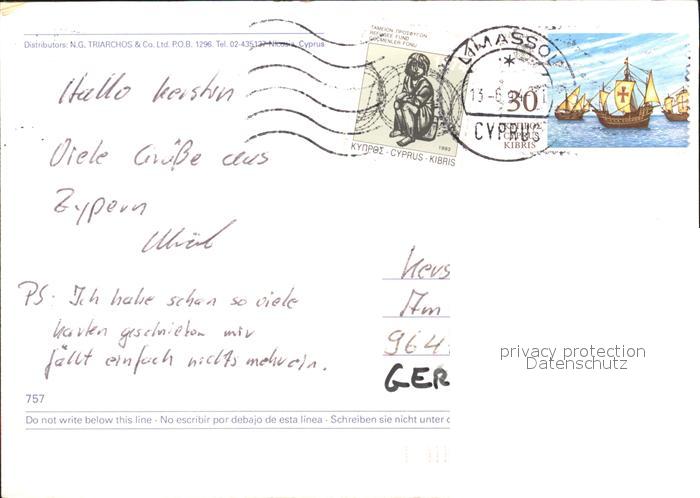 Distributors: N.G. TRIARCHOS & Co. Ltd. P.O.B. 1296. Tel. 02-435137 Nicosia, Cyprus
ΤΑΜΕΙΟΝ ΠΡΟΣΦΥΓΩΝ
REFUGEE FUND
GÖÇMENLER FONU
1993
ΚΥΠΡΟΣ - CYPRUS - KIBRIS
LIMASSOL
13-6
CYPRUS
30
KIBRIS
Hallo Kerstin
Viele Grüße aus
Zypern
PS: Ich habe schon so viele
Karten geschrieben mir
fällt einfach nichts mehr ein.
Kers
Am
964
GER
privacy protection
Datenschutz
757
Do not write below this line - No escribir por debajo de esta línea - Schreiben sie nicht unter